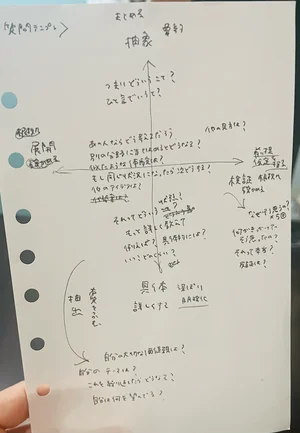 まとめる
抽象 要約
つまりどういうこと?
ひと言でいうと?
展開
あの人ならどう考えるだろう?
別の分野に当てはめるとどうなる?
似たような体験は?
もし同じ状況になったら次どうする?
他のアイデアは?
他の具体は?
前提
仮定を探る
検証 根拠の
なぜそう思うの?
何がきっかけで
そう思ったの?
それって本当?
それってどういう状態?
もっと詳しく教えて
例えば? 具体的には?
いつ どこで だれ?
具体 深ぼり
詳しくする 明確化
抽出 本質をつかむ
自分の大切な価値観は?
自分のテーマは?
これを繰り返したらどうなる?
自分は何を学んだ?